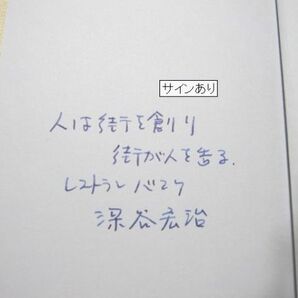 サインあり
人は街を創り
街が人を造る.
レストランバスク
深谷宏治